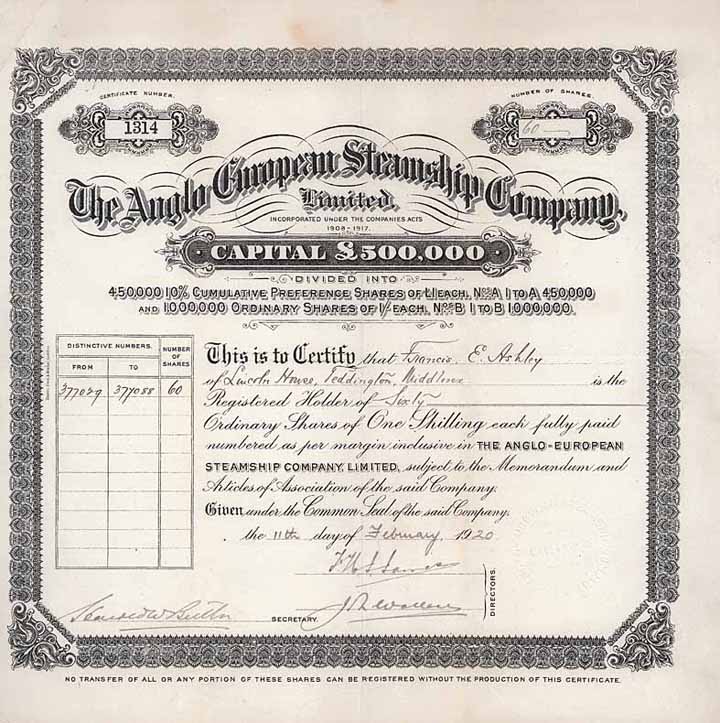 CERTIFICATE NUMBER.
1314
NUMBER OF SHARES.
60
The Anglo European Steamship Company,
Limited,
INCORPORATED UNDER THE COMPANIES ACTS
1908-1917.
CAPITAL £500,000
DIVIDED INTO
450,000 10% CUMULATIVE PREFERENCE SHARES OF £1 EACH, Nos A 1 TO A 450,000
AND 1,000,000 ORDINARY SHARES OF 1/- EACH, Nos B 1 TO B 1,000,000.
DISTINCTIVE NUMBERS. NUMBER OF SHARES
FROM TO
377029 377088 60
This is to Certify that Francis. E. Ashley
of Lincoln House, Teddington, Middlesex is the
Registered Holder of Sixty
Ordinary Shares of One Shilling each fully paid
numbered as per margin inclusive in THE ANGLO-EUROPEAN
STEAMSHIP COMPANY, LIMITED, subject to the Memorandum and
Articles of Association of the said Company.
Given under the Common Seal of the said Company.
the 11th day of February, 1920
DIRECTORS.
SECRETARY.
NO TRANSFER OF ALL OR ANY PORTION OF THESE SHARES CAN BE REGISTERED WITHOUT THE PRODUCTION OF THIS CERTIFICATE.